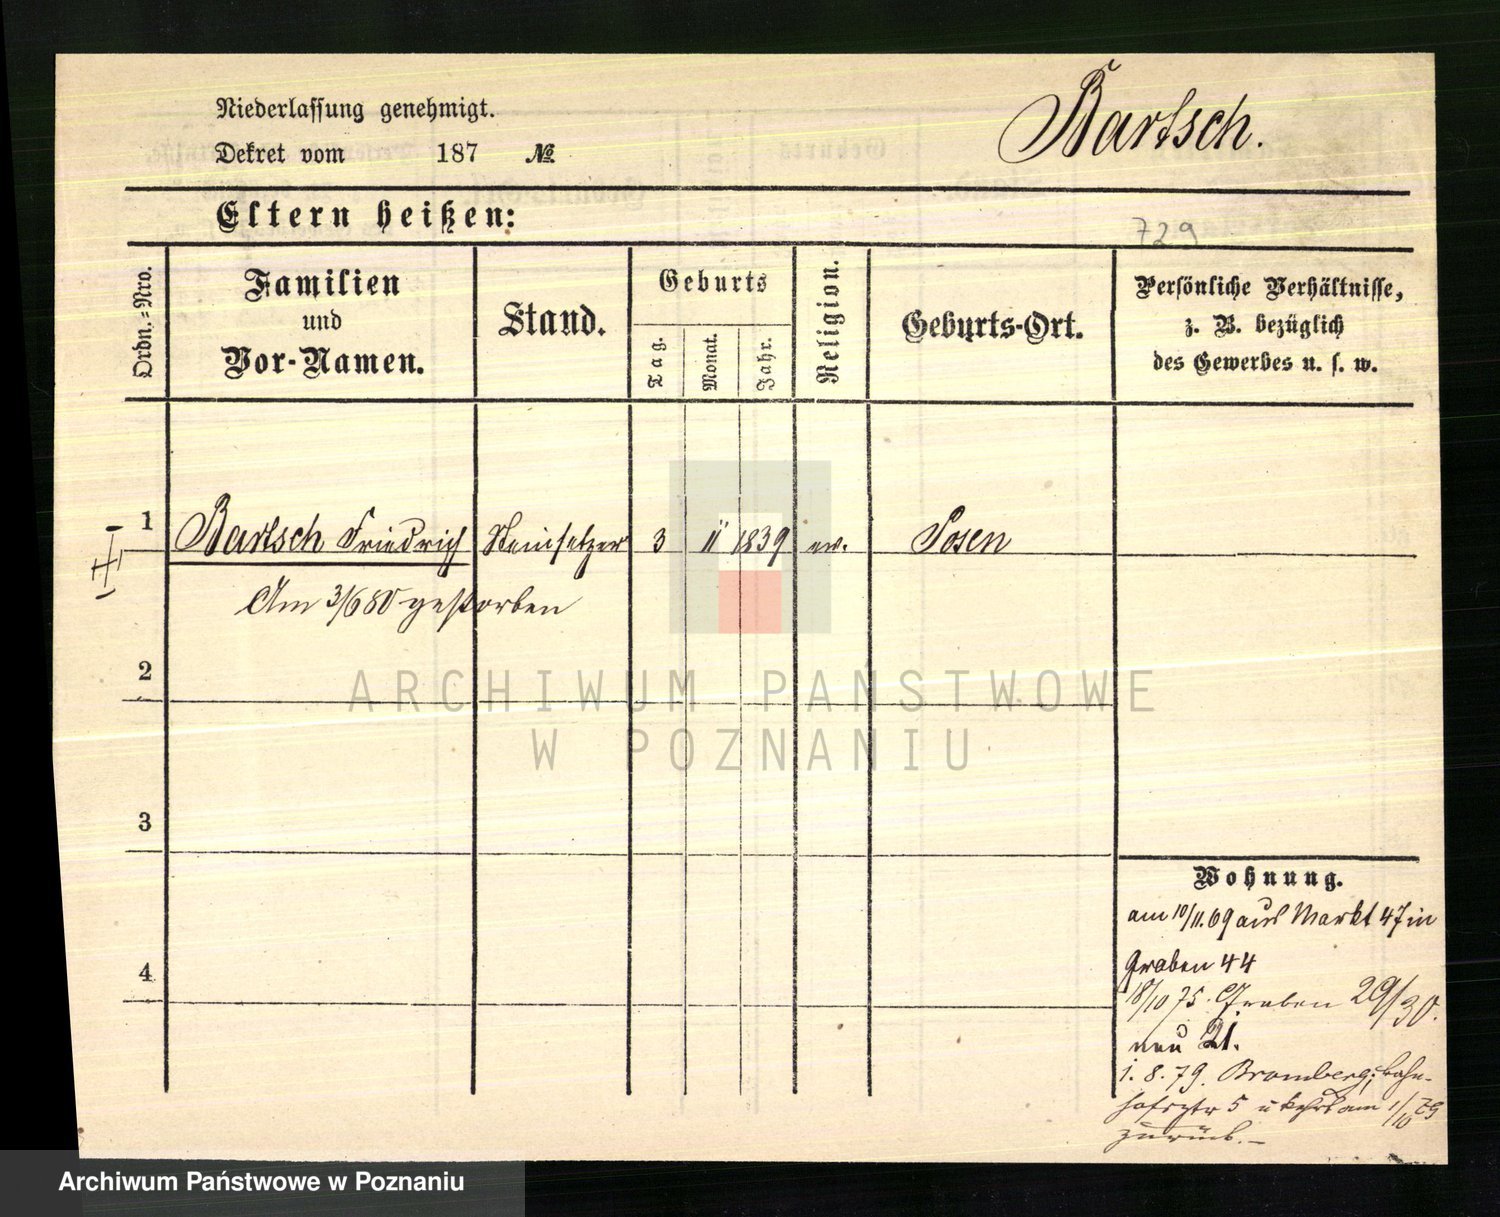 Bartsch.
Niederlassung genehmigt.
Dekret vom 187 №
Eltern heißen:
729
Ordn.-Nro.
Familien
und
Vor-Namen.
Stand.
Geburts
Tag.
Monat.
Jahr.
Religion.
Geburts-Ort.
Persönliche Verhältnisse,
z. B. bezüglich
des Gewerbes u. s. w.
1 Bartsch Friedrich Steinsetzer 3 11 1839 ev. Posen
Am 3/6 80 gestorben
2
ARCHIWUM PAŃSTWOWE
W POZNANIU
3
4
Wohnung.
am 10/11.69 aus Markt 47 in
Graben 44
18/10 75. Graben 29/30.
neu 21.
1. 8. 79. Bromberg, Bahn-
hofstr 5 u kehrt am 1/10 79
zurück.
Archiwum Państwowe w Poznaniu